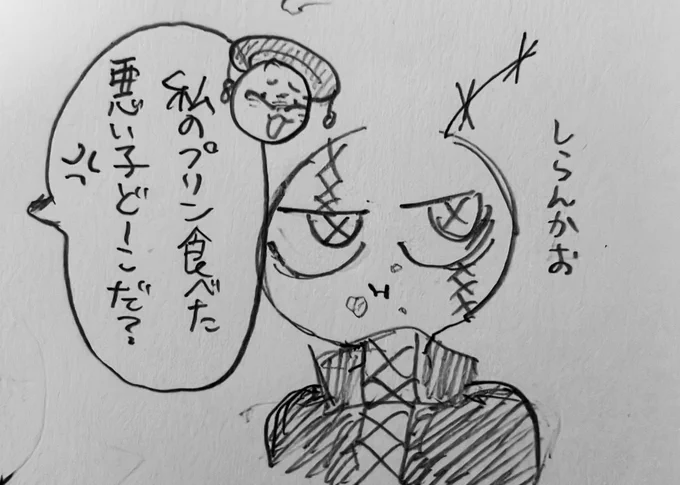 私のプリン食べた
悪い子どーこだ?
しらんかお